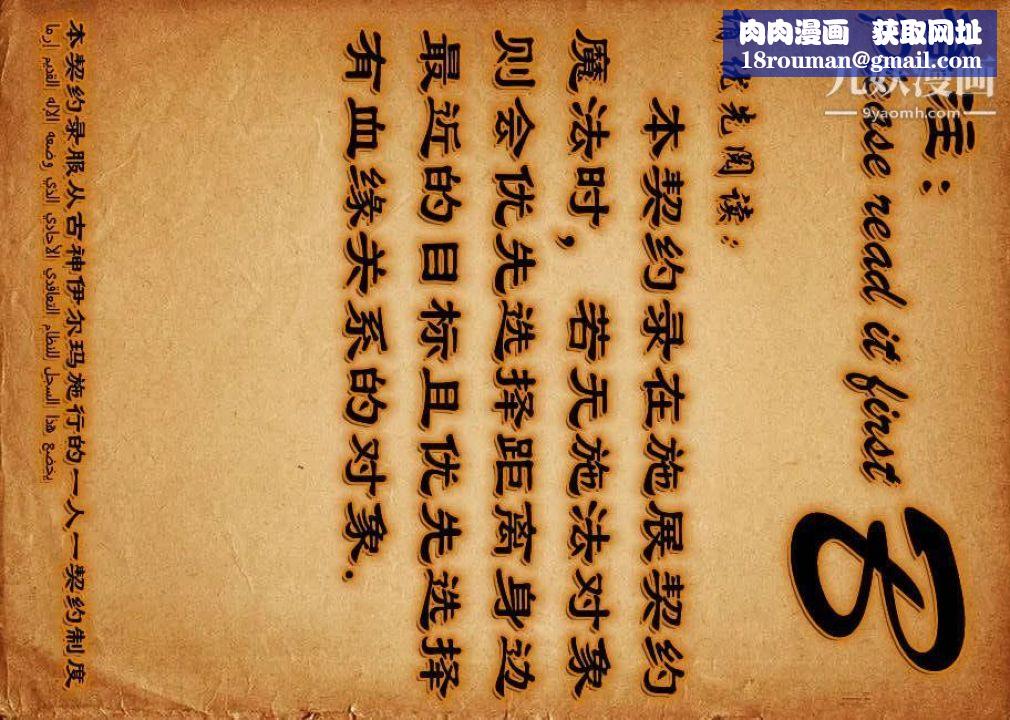 肉肉漫画 获取网址
18rouman@gmail.com
九妖漫画
9yaomh.com
注:
read it first
请优先阅读:
本契约录在施展契约
魔法时,若无施法对象
则会优先选择距离身边
最近的目标且优先选择
有血缘关系的对象.
本契约录服从古神伊尔玛施行的一人一契约制度
يخضع هذا السجل للنظام التعاقدي الأحادي الذي وضعه الإله القديم إرما